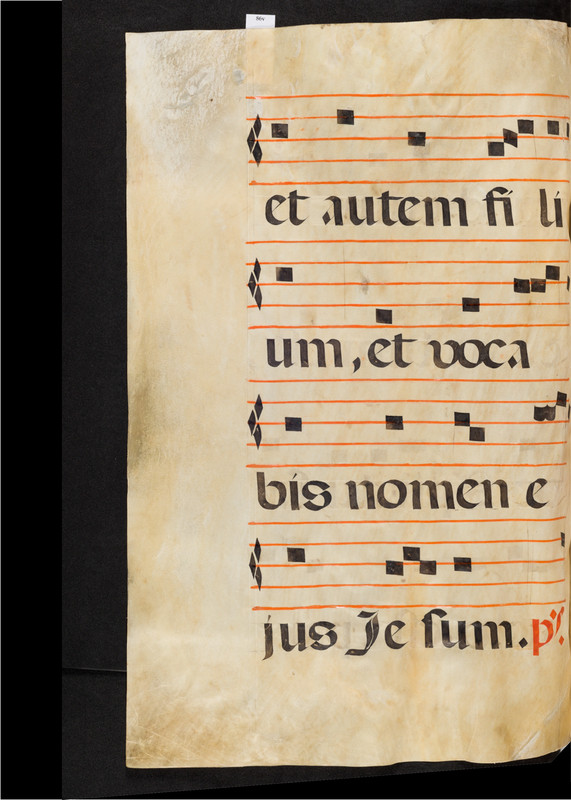 86v
et autem fi li
um, et voca
bis nomen e
jus Je sum. ps.